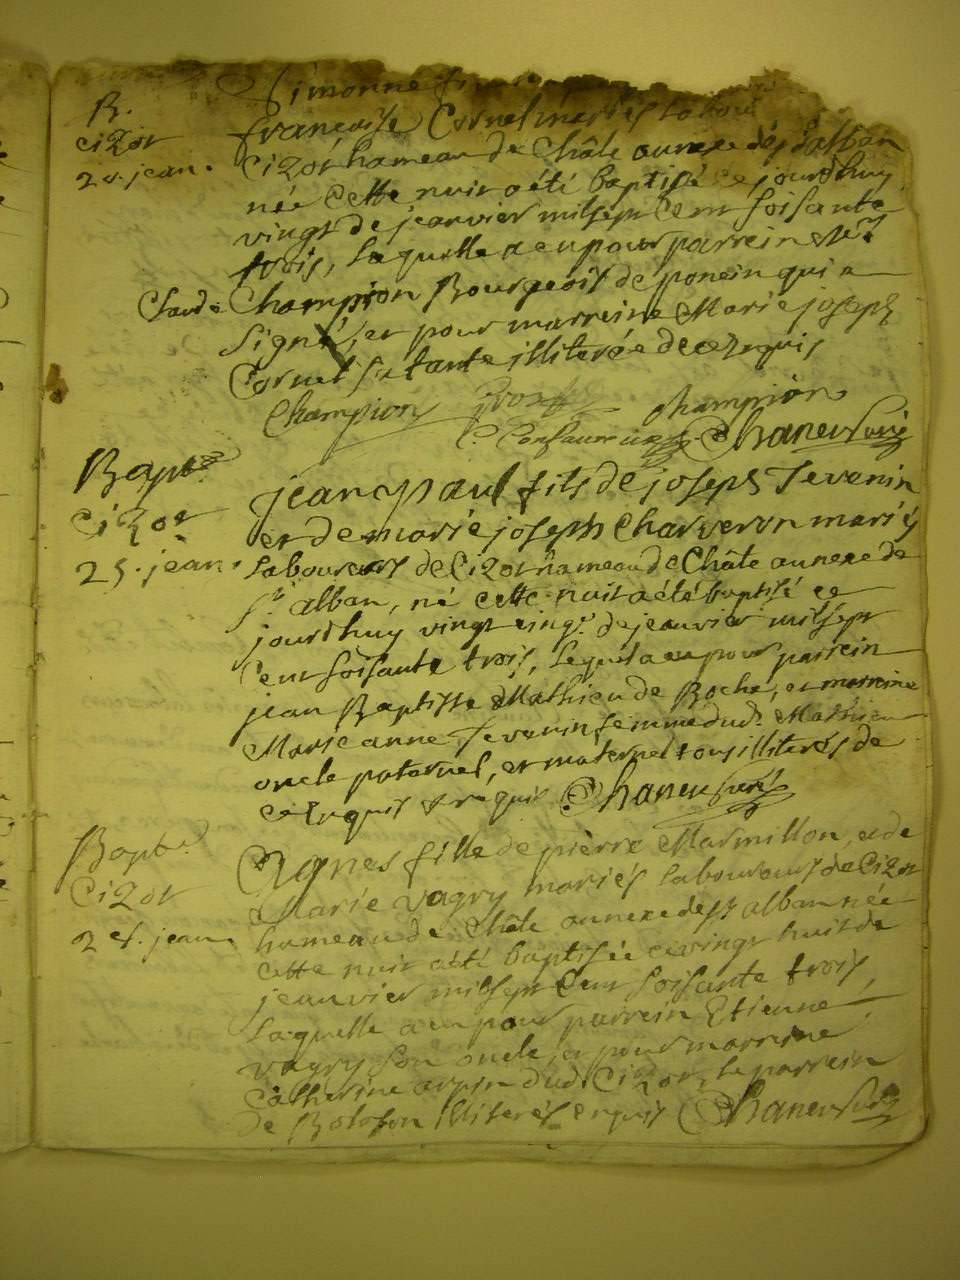 Simonne
B.
françoise Cornet mariés labou
Cizot
Cizot hameau de Châle annexe de st alban
20. jean.
née cette nuit a été baptisée ce jourdhuy
vingt de jeanvier mil sept Cent soisante
trois, Laquelle a eu pour parrein
Claude Champion Bourgeois de poncin qui a
signé, et pour marreine Marie joseph
Cornet sa tante illiterée de ce enquis
Champion champion
Chaneu Curé
Bapt.
jean paul fils de joseph Tevenin
Cizot
et de marie joseph Charveron mariés
25. jean.
laboureurs de Cizot hameau de Châle annexe de
st alban, né cette nuit a été baptisé ce
jourdhuy vingt cinq. de jeanvier mil sept
Cent soisante trois, Lequel a eu pour parrein
jean Baptiste Mathieu de Roche, et marreine
Marie anne Tevenin femme dud. Mathieu
oncle paternel, et maternel tous illiterés de
ce enquis et requis Chaneu Curé
Bapt.
Agnes fille de pierre Marmillon, et de
Cizot
Marie vagry mariés laboureurs de Cizot
28. jean.
hameau de Châle annexe de st alban née
cette nuit a été baptisée ce vingt huit de
jeanvier mil sept Cent soisante trois,
Laquelle a eu pour parrein Etienne
vagry son oncle, et pour marreine
Catherine arpin dud. Cizot, le parrein
de Bolozon illiterés enquis Chaneu Curé